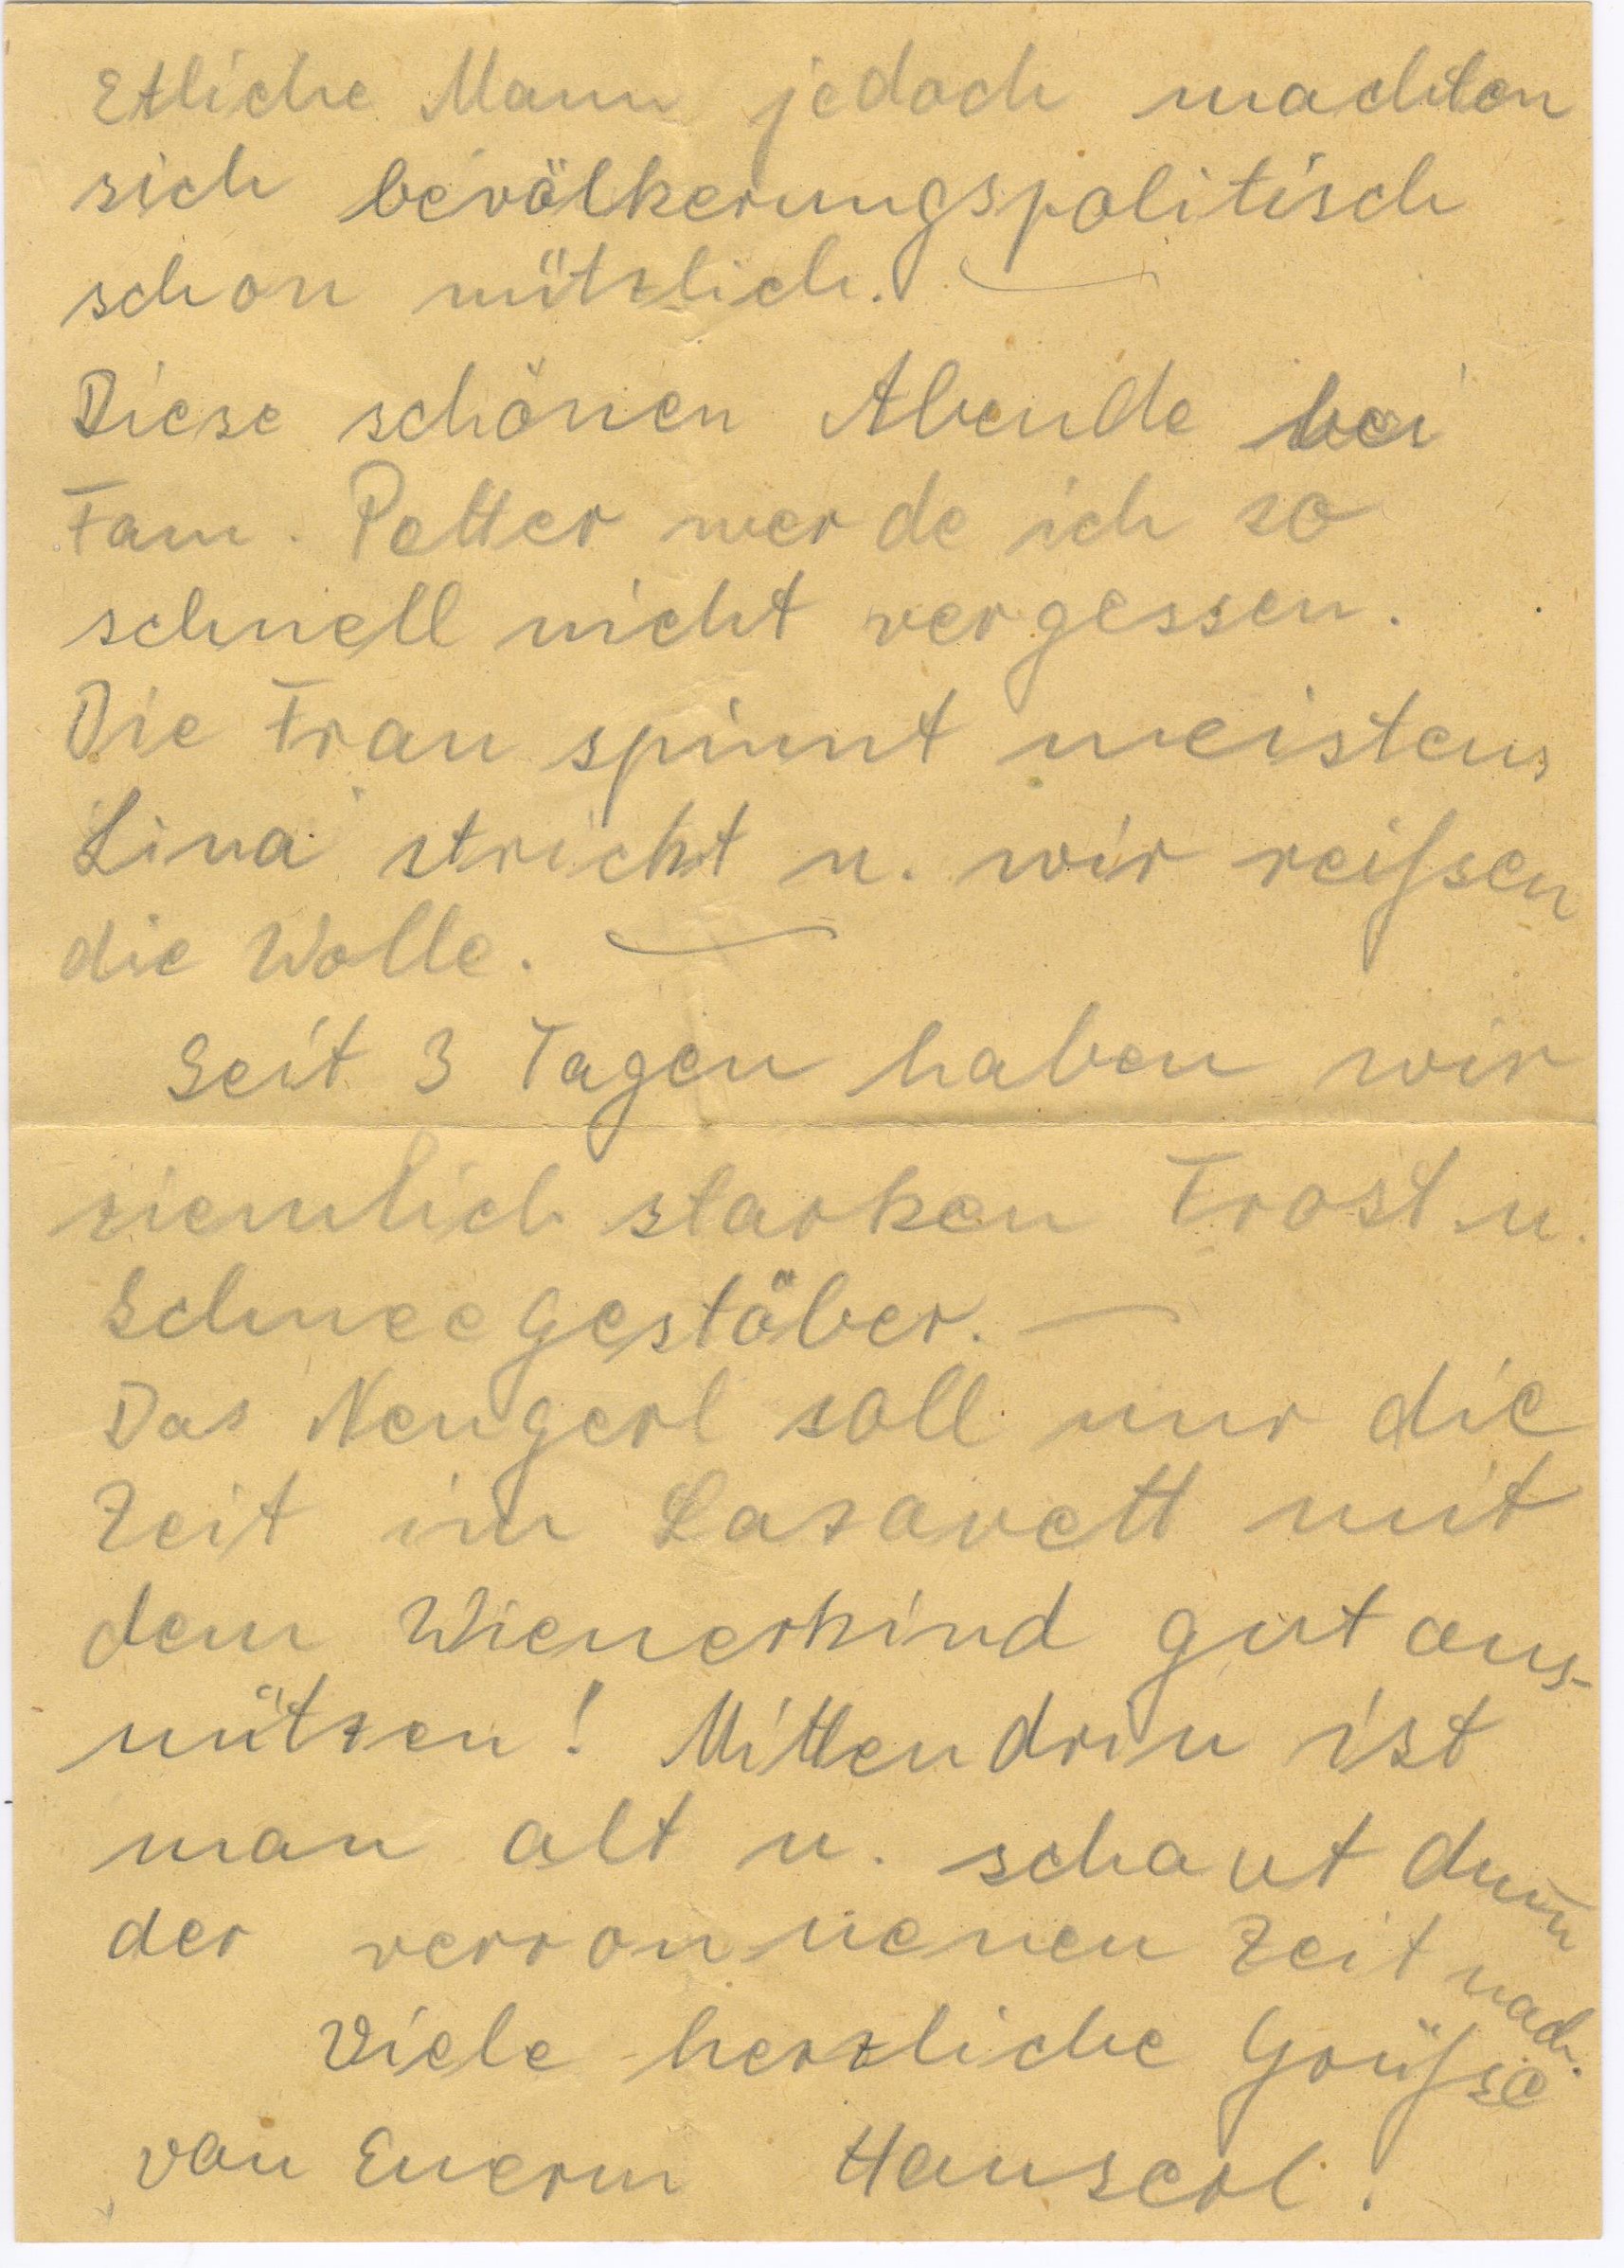 Etliche Mann jedoch machten
sich bevölkerungspolitisch
schon nützlich. —
Diese schönen Abende bei
Fam. Petter werde ich so
schnell nicht vergessen.
Die Frau spinnt meistens
Lina strickt u. wir reißsen
die Wolle. —
Seit 3 Tagen haben wir
ziemlich starken Frost u.
Schneegestöber. —
Das Neugerl soll nur die
Zeit im Lazarett mit
dem Wienerkind gut aus-
nützen! Mittendrin ist
man alt u. schaut dum̄
der verronnenen Zeit nach.
Viele herzliche Grüßse
von Euerm Hanserl.